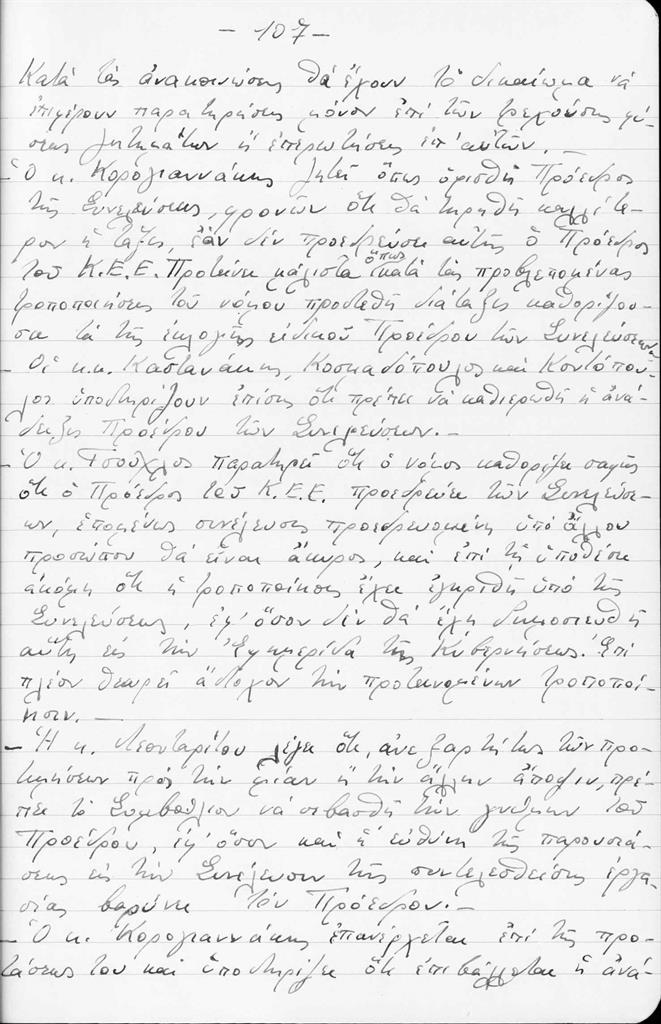 - 107 -
Κατά τάς ἀνακοινώσεις θά ἔχουν τό δικαίωμα νά
ἐπιφέρουν παρατηρήσεις μόνον ἐπί τῶν τρεχούσης φύ-
σεως ζητημάτων ἤ ἐπερωτήσεις ἐπ' αὐτῶν. -
- Ὁ κ. Κορογιαννάκης ζητεῖ ὅπως ὁρισθῆ Πρόεδρος
τῆς Συνελεύσεως, φρονῶν ὅτι θά τηρηθῆ καλλίτε-
ρον ἡ τάξις, ἐάν δέν προεδρεύση αὐτῆς ὁ Πρόεδρος
τοῦ Κ.Ε.Ε. Προτείνει μάλιστα ὅπως κατά τάς προβλεπομένας
τροποποιήσεις τοῦ νόμου προστεθῆ διάταξις καθορίζου-
σα τά τῆς ἐκλογῆς εἰδικοῦ Προέδρου τῶν Συνελεύσεων.
- Οἱ κ.κ. Καστανάκης, Κοσμαδόπουλος καί Κοντόπου-
λος ὑποστηρίζουν ἐπίσης ὅτι πρέπει νά καθιερωθῆ ἡ ἀνά-
δειξις Προέδρου τῶν Συνελεύσεων. -
- Ὁ κ. Τσούχλος παρατηρεῖ ὅτι ὁ νόμος καθορίζει σαφῶς
ὅτι ὁ Πρόεδρος τοῦ Κ.Ε.Ε. προεδρεύει τῶν Συνελεύσε-
ων, ἑπομένως συνέλευσις προεδρευομένη ὑπό ἄλλου
προσώπου θά εἶναι ἄκυρος, καί ἐπί τῆ ὑποθέσει
ἀκόμη ὅτι ἡ τροποποίησις ἔχει ἐγκριθῆ ὑπό τῆς
Συνελεύσεως, ἐφ' ὅσον δέν θά ἔχη δημοσιευθῆ
αὕτη εἰς τήν Ἐφημερίδα τῆς Κυβερνήσεως. Ἐπί
πλέον θεωρεῖ ἄστοχον τήν προτεινομένην τροποποί-
ησιν. -
- Ἡ κ. Λεονταρίτου λέγει ὅτι, ἀνεξαρτήτως τῶν προ-
τιμήσεων πρός τήν μίαν ἤ τήν ἄλλην ἄποψιν, πρέ-
πει τό Συμβούλιον νά σεβασθῆ τήν γνώμην τοῦ
Προέδρου, ἐφ' ὅσον καί ἡ εὐθύνη τῆς παρουσιά-
σεως εἰς τήν Συνέλευσιν τῆς συντελεσθείσης ἐργα-
σίας βαρύνει τόν Πρόεδρον. -
- Ὁ κ. Κορογιαννάκης ἐπανέρχεται ἐπί τῆς προ-
τάσεώς του καί ὑποστηρίζει ὅτι ἐπιβάλλεται ἡ ἀνά-